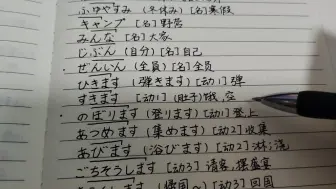 ふゆやすみ (冬休み) [名] 寒假
キャンプ [名] 野营
みんな [名] 大家
じぶん (自分) [名] 自己
ぜんいん (全員) [名] 全员
ひきます (弾きます) [动1] 弹
すきます [动1] (肚子)饿,空
のぼります (登ります) [动1] 登上
あつめます (集めます) [动2] 收集
あびます (浴びます) [动2] 淋;浇
ごちそうします [动3] 请客,摆盛宴
[动3] 回国